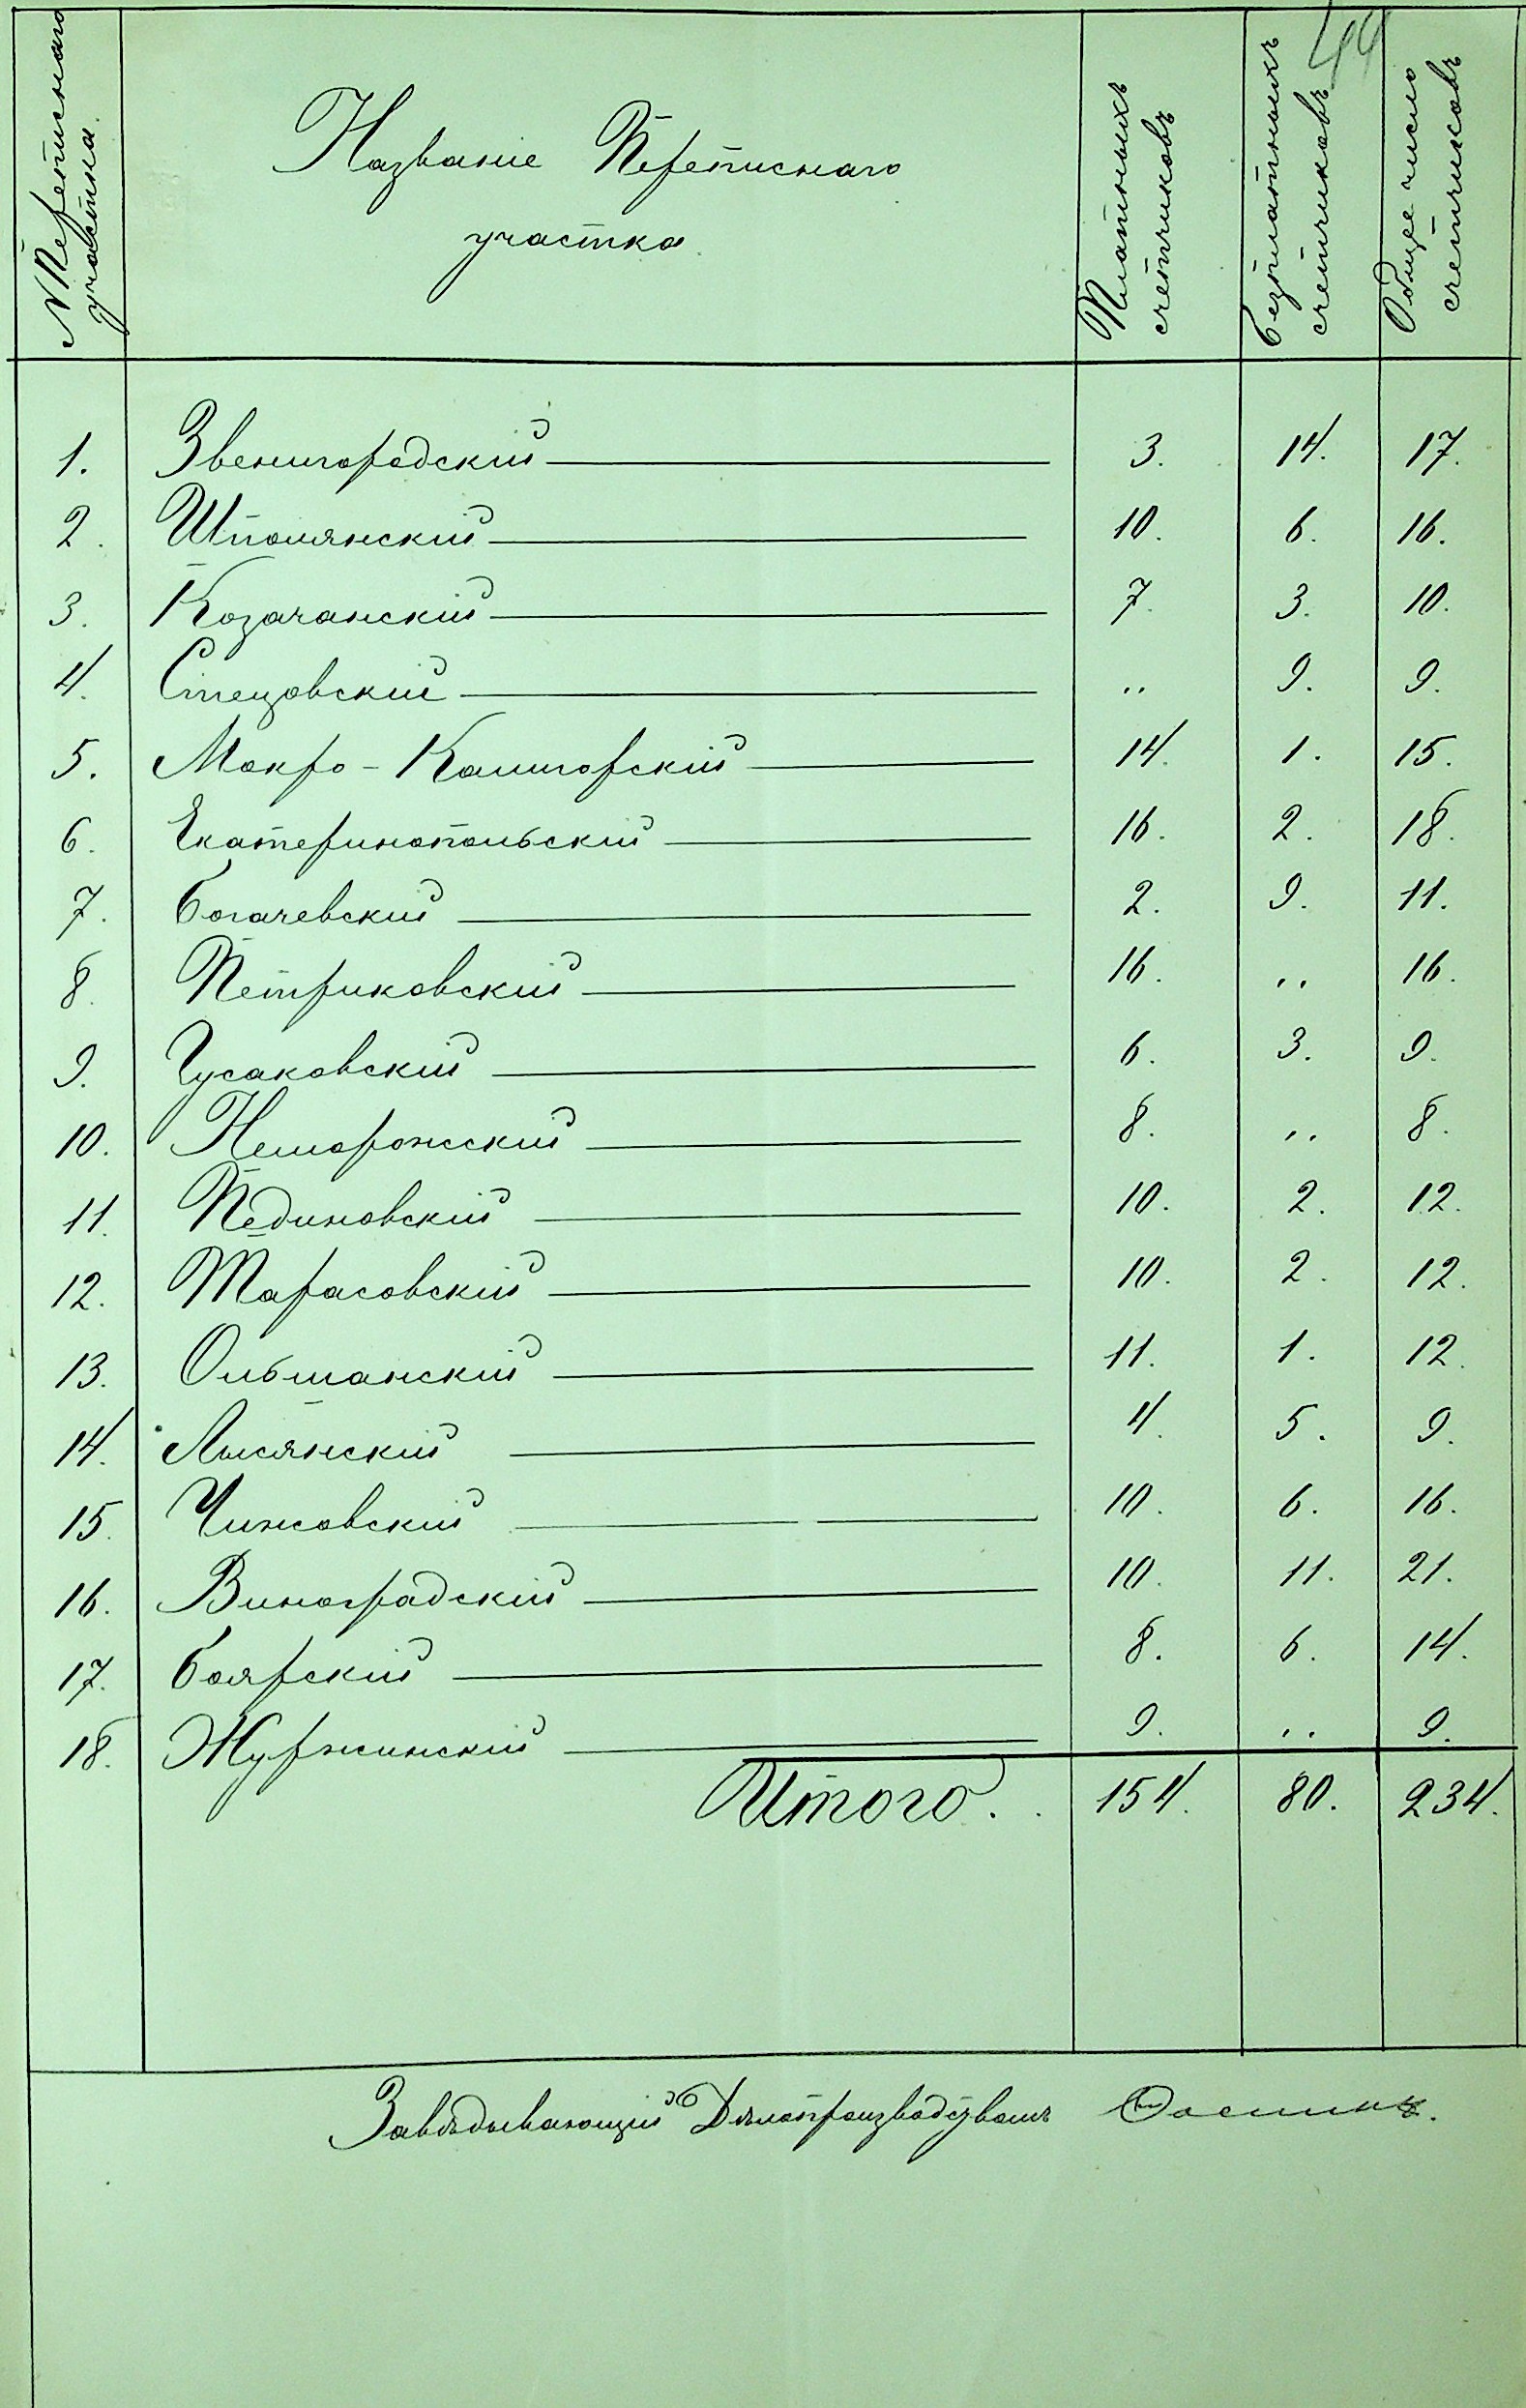 44
№ Переписнаго участка.
Названіе Переписнаго
участка
Платныхъ счетчиковъ
Безплатныхъ счетчиковъ
Общее число счетчиковъ
1. Звенигородскій 3. 14. 17.
2. Шполянскій 10. 6. 16.
3. Козачанскій 7. 3. 10.
4. Стецовскій ,, 9. 9.
5. Мокро-Калигорскій 14. 1. 15.
6. Екатеринопольскій 16. 2. 18.
7. Богачевскій 2. 9. 11.
8. Петриковскій 16. ,, 16.
9. Гусаковскій 6. 3. 9.
10. Неморожскій 8. ,, 8.
11. Пединовскій 10. 2. 12.
12. Тарасовскій 10. 2. 12.
13. Ольшанскій 11. 1. 12.
14. Лысянскій 4. 5. 9.
15. Чижовскій 10. 6. 16.
16. Виноградскій 10. 11. 21.
17. Боярскій 8. 6. 14.
18. Журжинскій 9. ,, 9.
Итого.. 154. 80. 234.
Завѣдывающій Дѣлопроизводствомъ